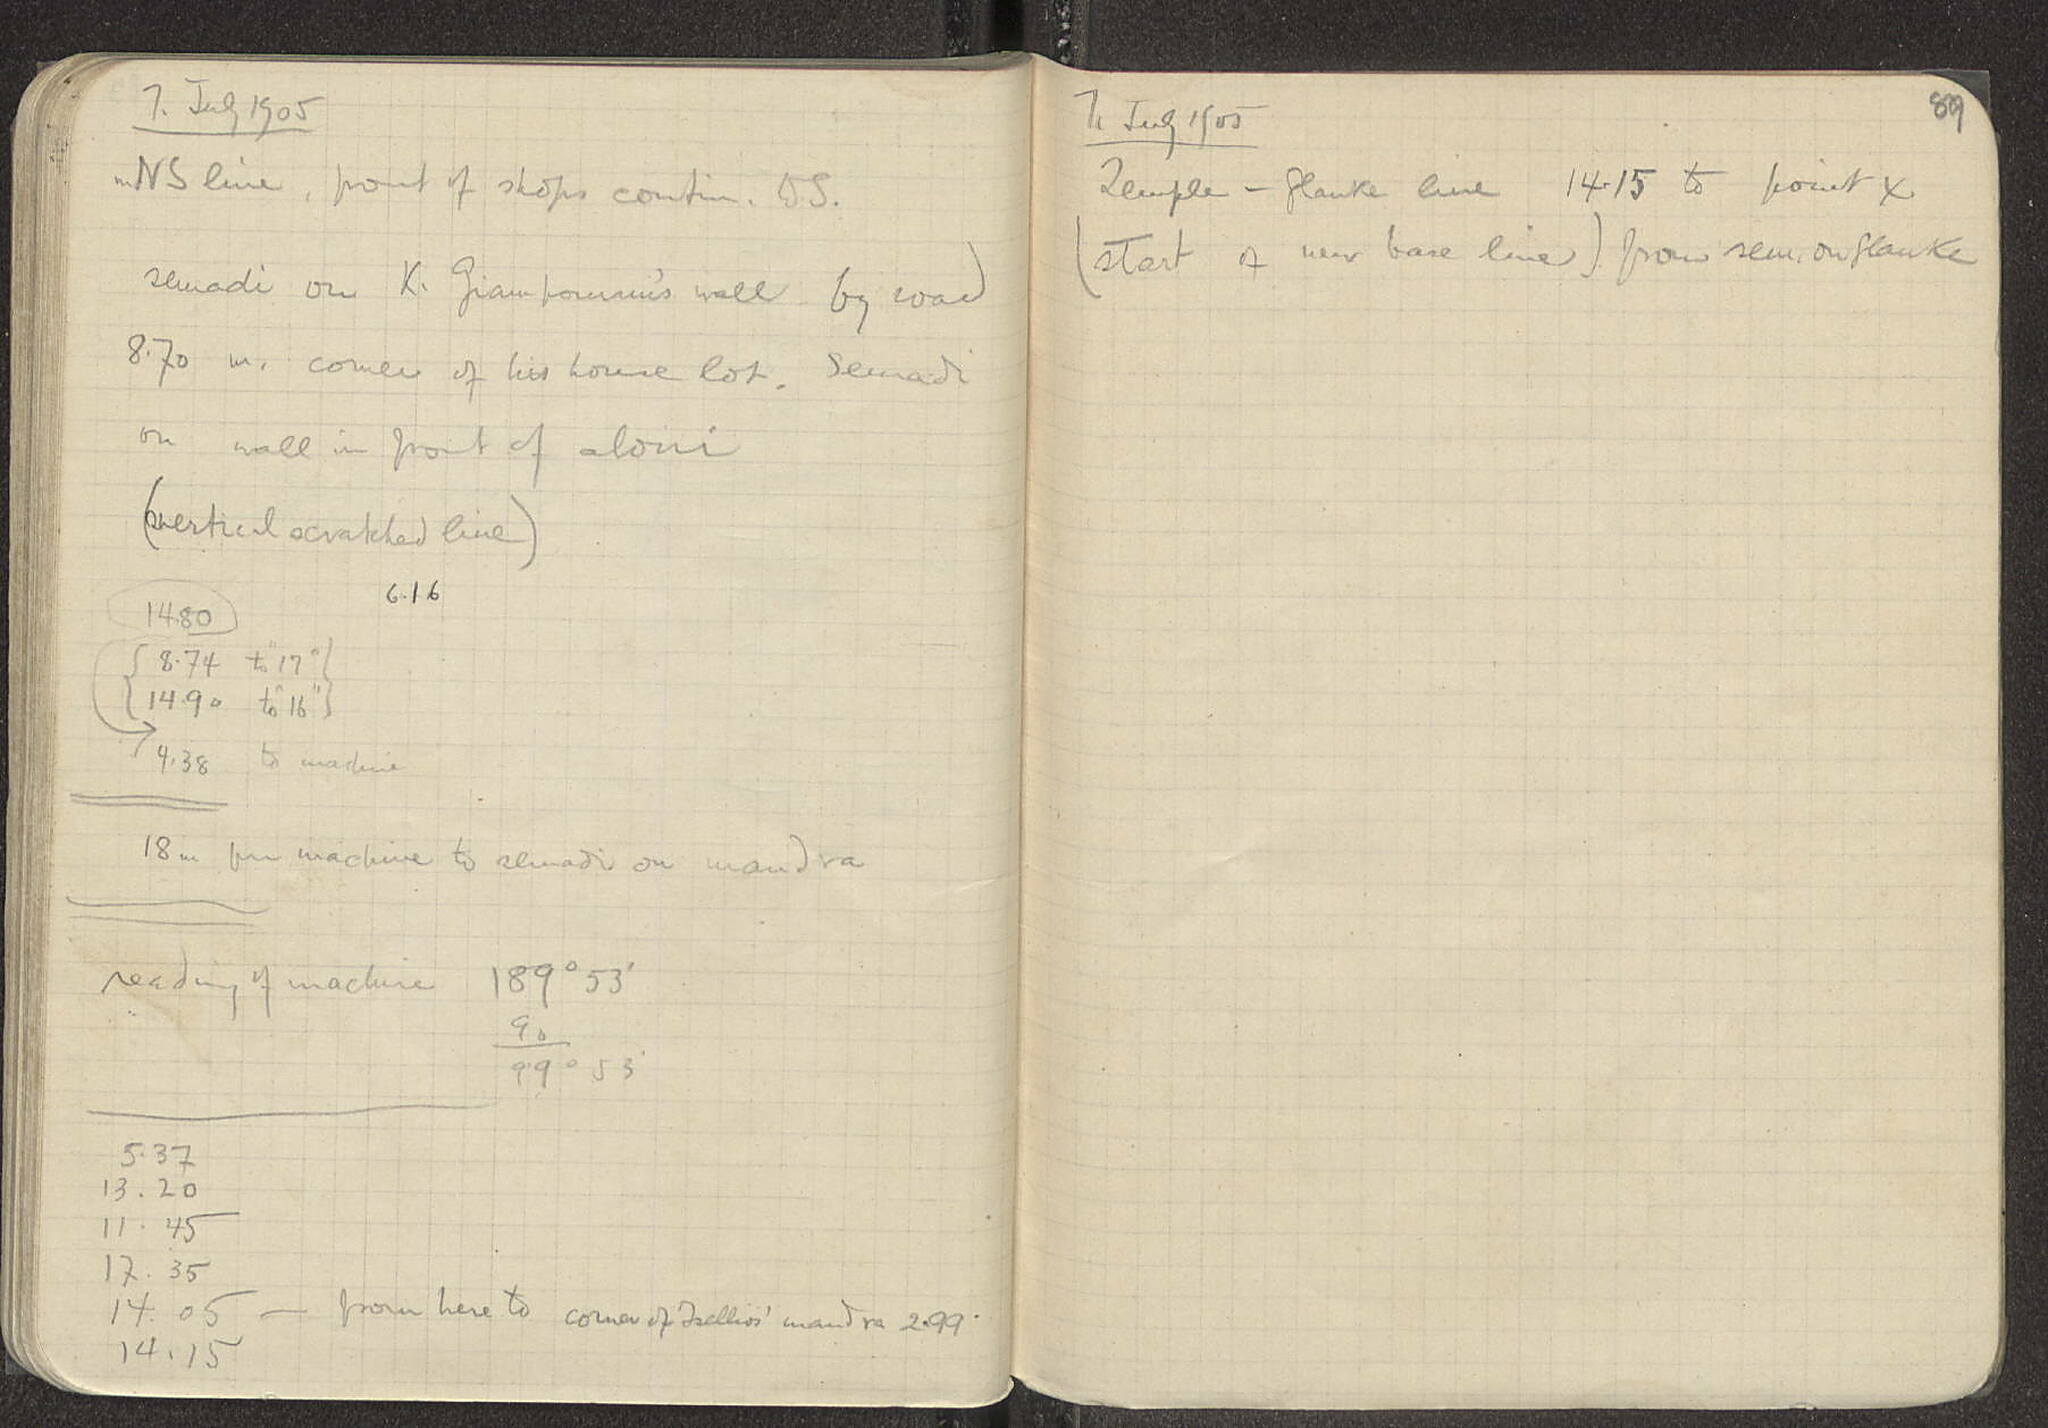 7. July 1905
NS line, front of shops contin. DS.
semadi on K. Giampouranis wall by road
8.70 m. corner of his house lot. Semadi
on wall in front of aloni
(vertical scratched line)
6.16
14.80
8.74 to "17"
14.90 to "16"
4.38 to machine
18 m fm machine to semadi on mandra
reading of machine 189° 53'
90
99° 53'
5.37
13.20
11.45
17.35
14.05 — from here to corner of Tsellios' mandra 2.99.
14.15
89
7. July 1905
Temple – Glauke line 14.15 to point X
(start of new base line) from sem. on Glauke